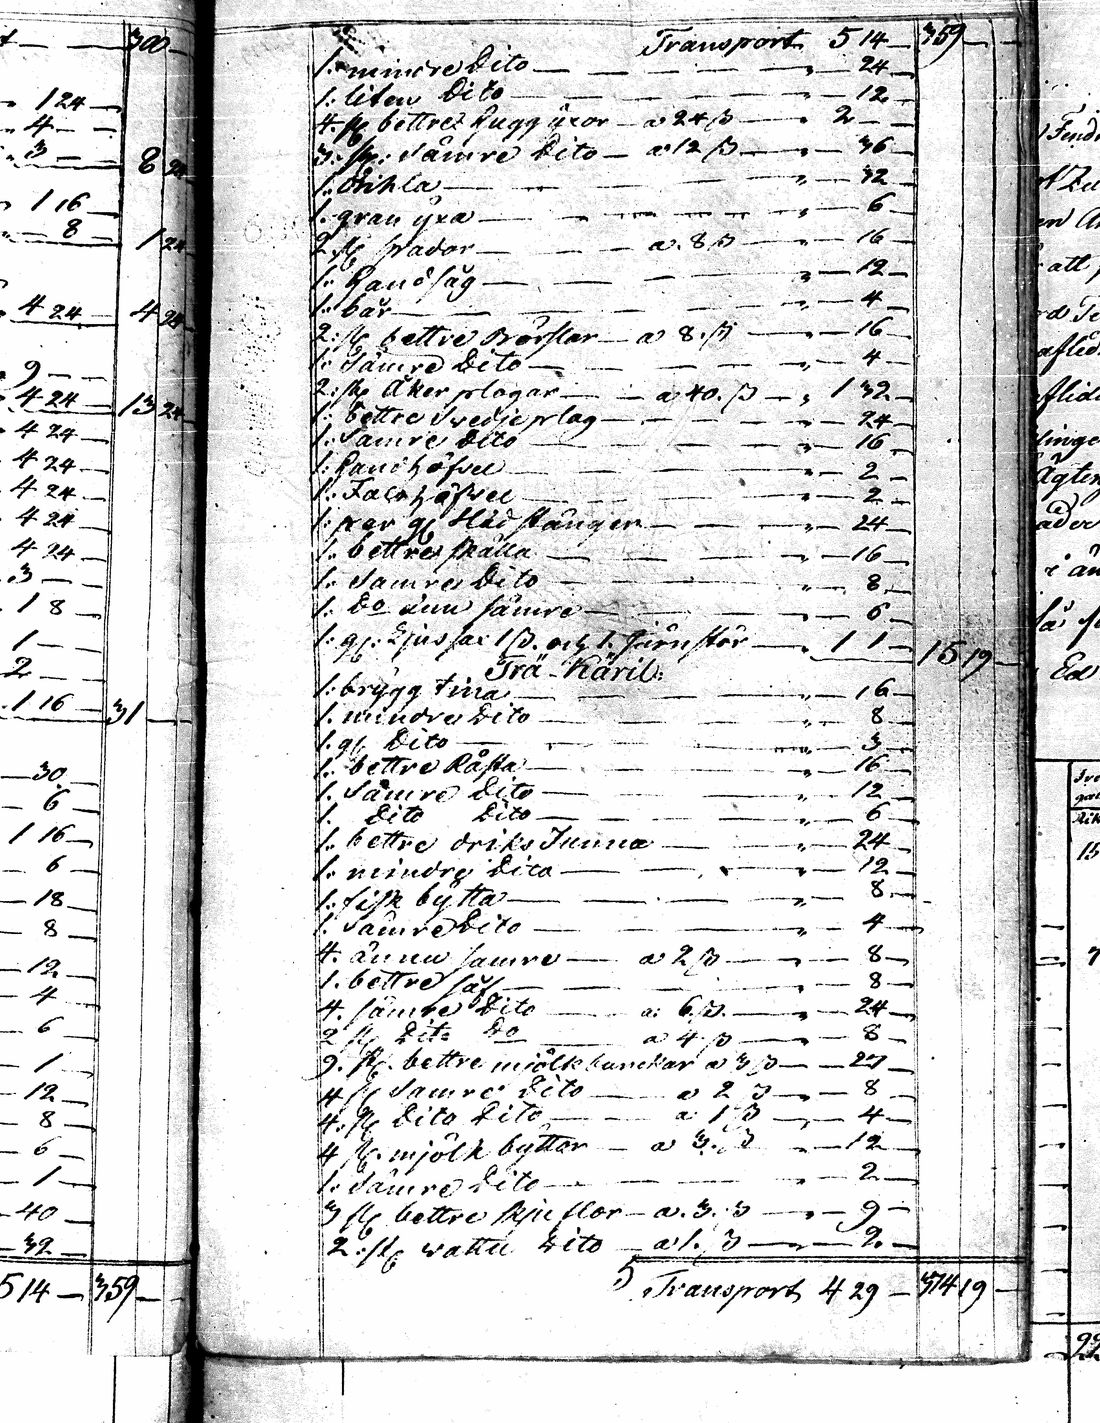 Transport 5 14 359
1. mindre Dito 24
1. liten Dito 12
4. st bettre Hugg yxor a 24 β 2
3. st: Sämre Dito a 12 β 36
1. Bihla 32
1. gran yxa 6
2 st spador a 8 β 16
1. Handsåg 12
1. bår 4
2. st bettre a 8 β 16
1. Sämre Dito 4
2. st Åker plogar a 40. β 1 32
1. bettre Swedje plog 24
1. Sämre Dito 16
1. Handhöfvel 2
1. 2
1. par gl Släd stänger 24
1. bettre skälla 16
1. Samre Dito 8
1. Do ännu sämre 6
1. gl. Ljussax 1 β. och 1. Järnstör 1 1 15 19
Trä-Käril:
1. brygg tina 16
1. mindre Dito 8
1. gl Dito 3
1. bettre Råsta 16
1. Sämre Dito 12
1. Dito Dito 6
1. bettre driks Tunna 24
1. mindre Dito 12
1. fisk bytta 8
1. Sämre Dito 4
4. ännu samre a 2 β 8
1. bettre såf 8
4. sämre Dito a: 6 β. 24
2 st Dito Do a 4 β 8
9. st. bettre mjölk bunckar a 3 β 27
4 st Samre Dito a 2 β 8
4. st Dito Dito a 1 β 4
4 st. mjölk byttor a 3. β 12
1. Sämre Dito 2
3 st bettre a. 3. β 9
2. st wattu Dito a 1. β 2
Transport 4 29 374 19
300
1 24
4
3 8 24
1 16
8 1 24
4 24 4 24
9
4 24 13 24
4 24
4 24
4 24
4 24
4 24
3
1 8
1
2
1 16 31
30
6
1 16
6
18
8
12
4
6
1
12
8
6
1
40
32
514 359
att
i än
15